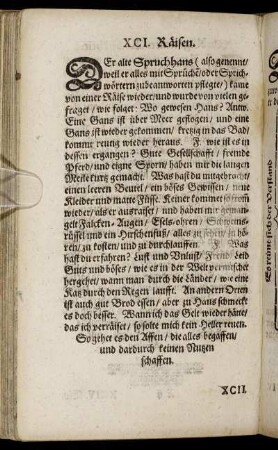 XCI. Räisen.
DEr alte Spruchhans (also genennt/
weil er alles mit Sprüchē oder Sprich-
wörtern zu beantworten pflegte/) kame
von einer Räise wieder/ und wurde von vielen ge-
fraget/ wie folget: Wo gewesen Hans? Antw.
Eine Gans ist über Meer geflogen/ und eine
Gans ist wieder gekommen/ kretzig in das Bad/
kommt reutig wieder heraus. F. wie ist es in
dessen ergangen? Gute Gesellschafft/ fremde
Pferd/ und eigne Sporn/ haben mir die langen
Meile kurtz gemacht. Was hast du mitgebracht?
einen leeren Beutel/ ein böses Gewissen/ neue
Kleider und matte Füsse. Keiner kommet so fromm
wieder/ als er ausraiset/ und haben mir gemangelt
Falcken-Augen/ Esels-ohren/ Schweins-
rüssel und ein Hirschenfuß/ alles zu sehen/ zu hö-
ren/ zu kosten/ und zu durchlauffen. F. Was
hast du erfahren? Lust und Unlust/ Freud Leid
Guts und böses/ wie es in der Welt vermischet
hergehet/ wann man durch die Länder/ wie eine
Katz durch den Regen laufft. An andern Orten
ist auch gut Brod essen/ aber zu Hans schmeckt
es doch besser. Wann ich das Gelt wieder hätte/
das ich verräiset/ so solte mich kein Heller reuen.
So gehet es den Affen/ die alles begaffen/
und dardurch keinen Nutzen
schaffen.
XCII.